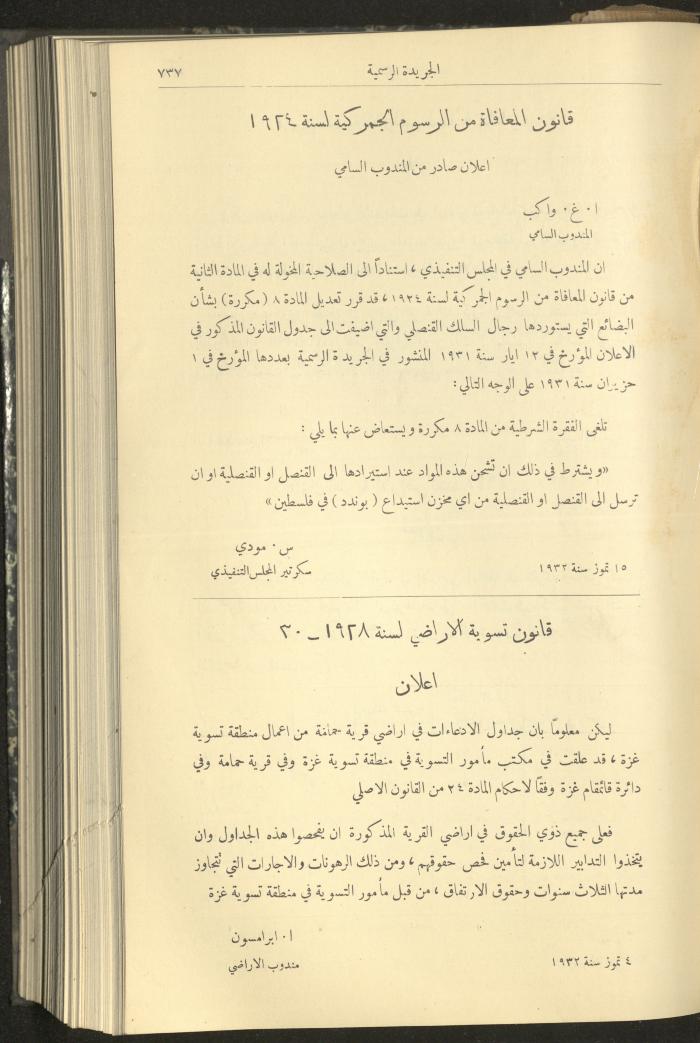 الجريدة الرسمية ٧٣٧
قانون المعافاة من الرسوم الجمركية لسنة ١٩٢٤
اعلان صادر من المندوب السامي
ا٠ غ٠ واكب
المندوب السامي
ان المندوب السامي في المجلس التنفيذي ، استناداً الى الصلاحية المخولة له في المادة الثانية
من قانون المعافاة من الرسوم الجمركية لسنة ١٩٢٤ ، قد قرر تعديل المادة ٨ ( مكررة ) بشأن
البضائع التي يستوردها رجال السلك القنصلي والتي اضيفت الى جدول القانون المذكور في
الاعلان المؤرخ في ١٢ ايار سنة ١٩٣١ المنشور في الجريدة الرسمية بعددها المؤرخ في ١
حزيران سنة ١٩٣١ على الوجه التالي :
تلغى الفقرة الشرطية من المادة ٨ مكررة ويستعاض عنها بما يلي :
«ويشترط في ذلك ان تشحن هذه المواد عند استيرادها الى القنصل او القنصلية او ان
ترسل الى القنصل او القنصلية من اي مخزن استيداع ( بوندد ) في فلسطين»
س٠ مودي
١٥ تموز سنة ١٩٣٢ سكرتير المجلس التنفيذي
قانون تسوية الاراضي لسنة ١٩٢٨ – ٣٠
اعلان
ليكن معلوماً بان جداول الادعاءات في اراضي قرية حمامة من اعمال منطقة تسوية
غزة ، قد علقت في مكتب مأمور التسوية في منطقة تسوية غزة وفي قرية حمامة وفي
دائرة قائمقام غزة وفقاً لاحكام المادة ٢٤ من القانون الاصلي
فعلى جميع ذوي الحقوق في اراضي القرية المذكورة ان يفحصوا هذه الجداول وان
يتخذوا التدابير اللازمة لتأمين فحص حقوقهم ، ومن ذلك الرهونات والاجارات التي تتجاوز
مدتها الثلاث سنوات وحقوق الارتفاق ، من قبل مأمور التسوية في منطقة تسوية غزة
ا٠ ابرامسون
٤ تموز سنة ١٩٣٢ مندوب الاراضي